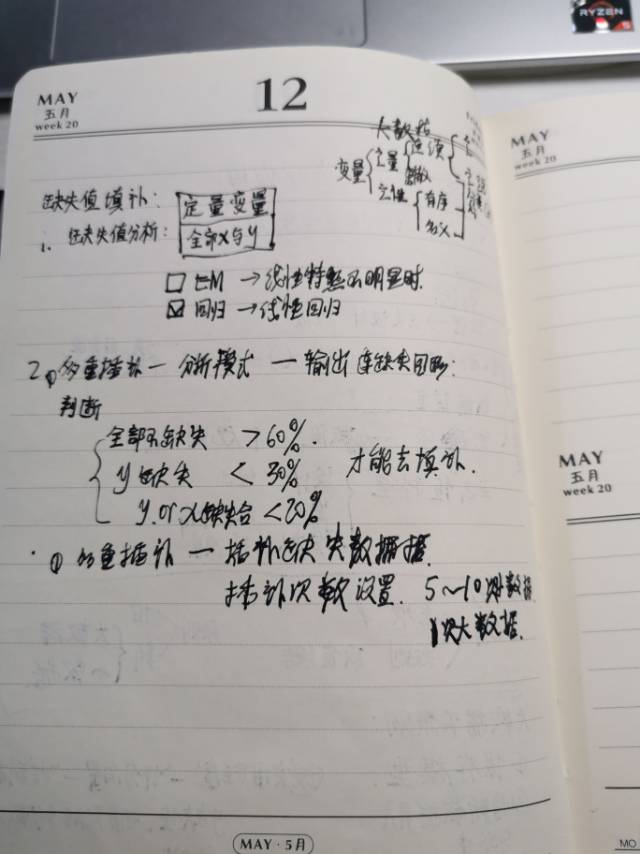 RYZEN
5
MAY
五月
week 20
12
大数据
变量 定量 连续
离散
定性 有序
名义
缺失值填补: 定量变量
1. 缺失值分析: 全部X与y
EM → 线性特点不明显时.
回归 → 线性回归
2. ① 多重插补 — 分析模式 — 输出 缺失图形:
判断
全部不缺失 > 60%.
y 缺失 < 30% 才能去填补.
y. or x 缺失 < 20%
① 多重插补 — 插补缺失数据
插补次数设置. 5~10 次 数据
1次大数据.
MAY · 5月
MAY
五月
week 20
MAY
五月
week 20
MO